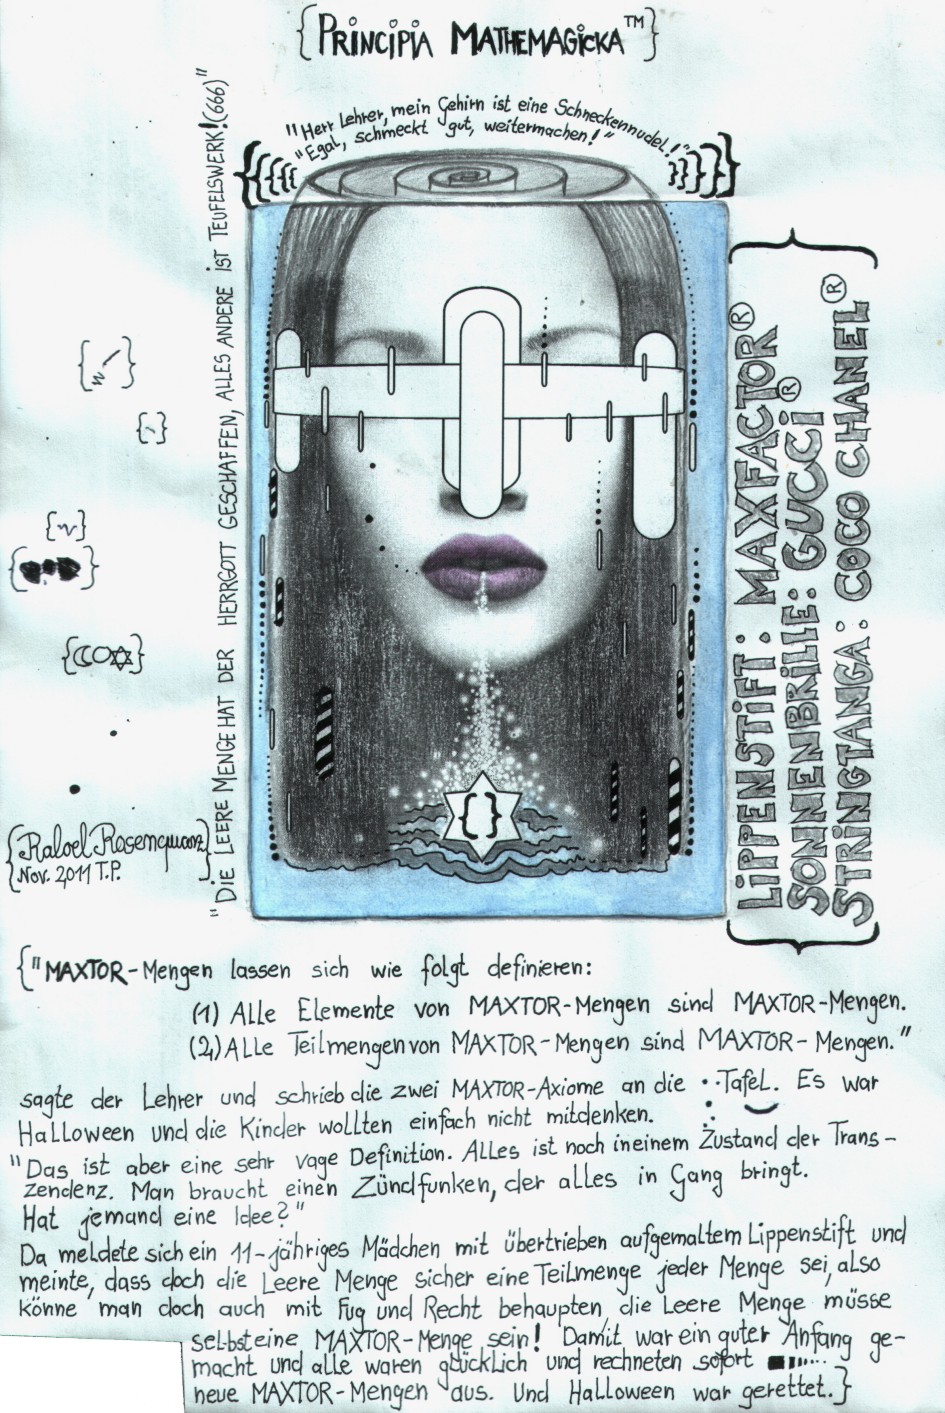 {PRINCIPIA MATHEMAGICKA™}
"Herr Lehrer, mein Gehirn ist eine Schneckennudel!"
"Egal, schmeckt gut, weitermachen!"
"DIE LEERE MENGE HAT DER HERRGOTT GESCHAFFEN, ALLES ANDERE IST TEUFELSWERK!(666)"
LIPPENSTIFT: MAXFACTOR®
SONNENBRILLE: GUCCI®
STRINGTANGA: COCO CHANEL®
{ }
Nov. 2011 T.P.
{"MAXTOR-Mengen lassen sich wie folgt definieren:
(1) Alle Elemente von MAXTOR-Mengen sind MAXTOR-Mengen.
(2) Alle Teilmengen von MAXTOR-Mengen sind MAXTOR-Mengen."
sagte der Lehrer und schrieb die zwei MAXTOR-Axiome an die Tafel. Es war
Halloween und die Kinder wollten einfach nicht mitdenken.
"Das ist aber eine sehr vage Definition. Alles ist noch in einem Zustand der Trans-
zendenz. Man braucht einen Zündfunken, der alles in Gang bringt.
Hat jemand eine Idee?"
Da meldete sich ein 11-jähriges Mädchen mit übertrieben aufgemaltem Lippenstift und
meinte, dass doch die Leere Menge sicher eine Teilmenge jeder Menge sei, also
könne man doch auch mit Fug und Recht behaupten, die Leere Menge müsse
selbst eine MAXTOR-Menge sein! Damit war ein guter Anfang ge-
macht und alle waren glücklich und rechneten sofort
neue MAXTOR-Mengen aus. Und Halloween war gerettet.}